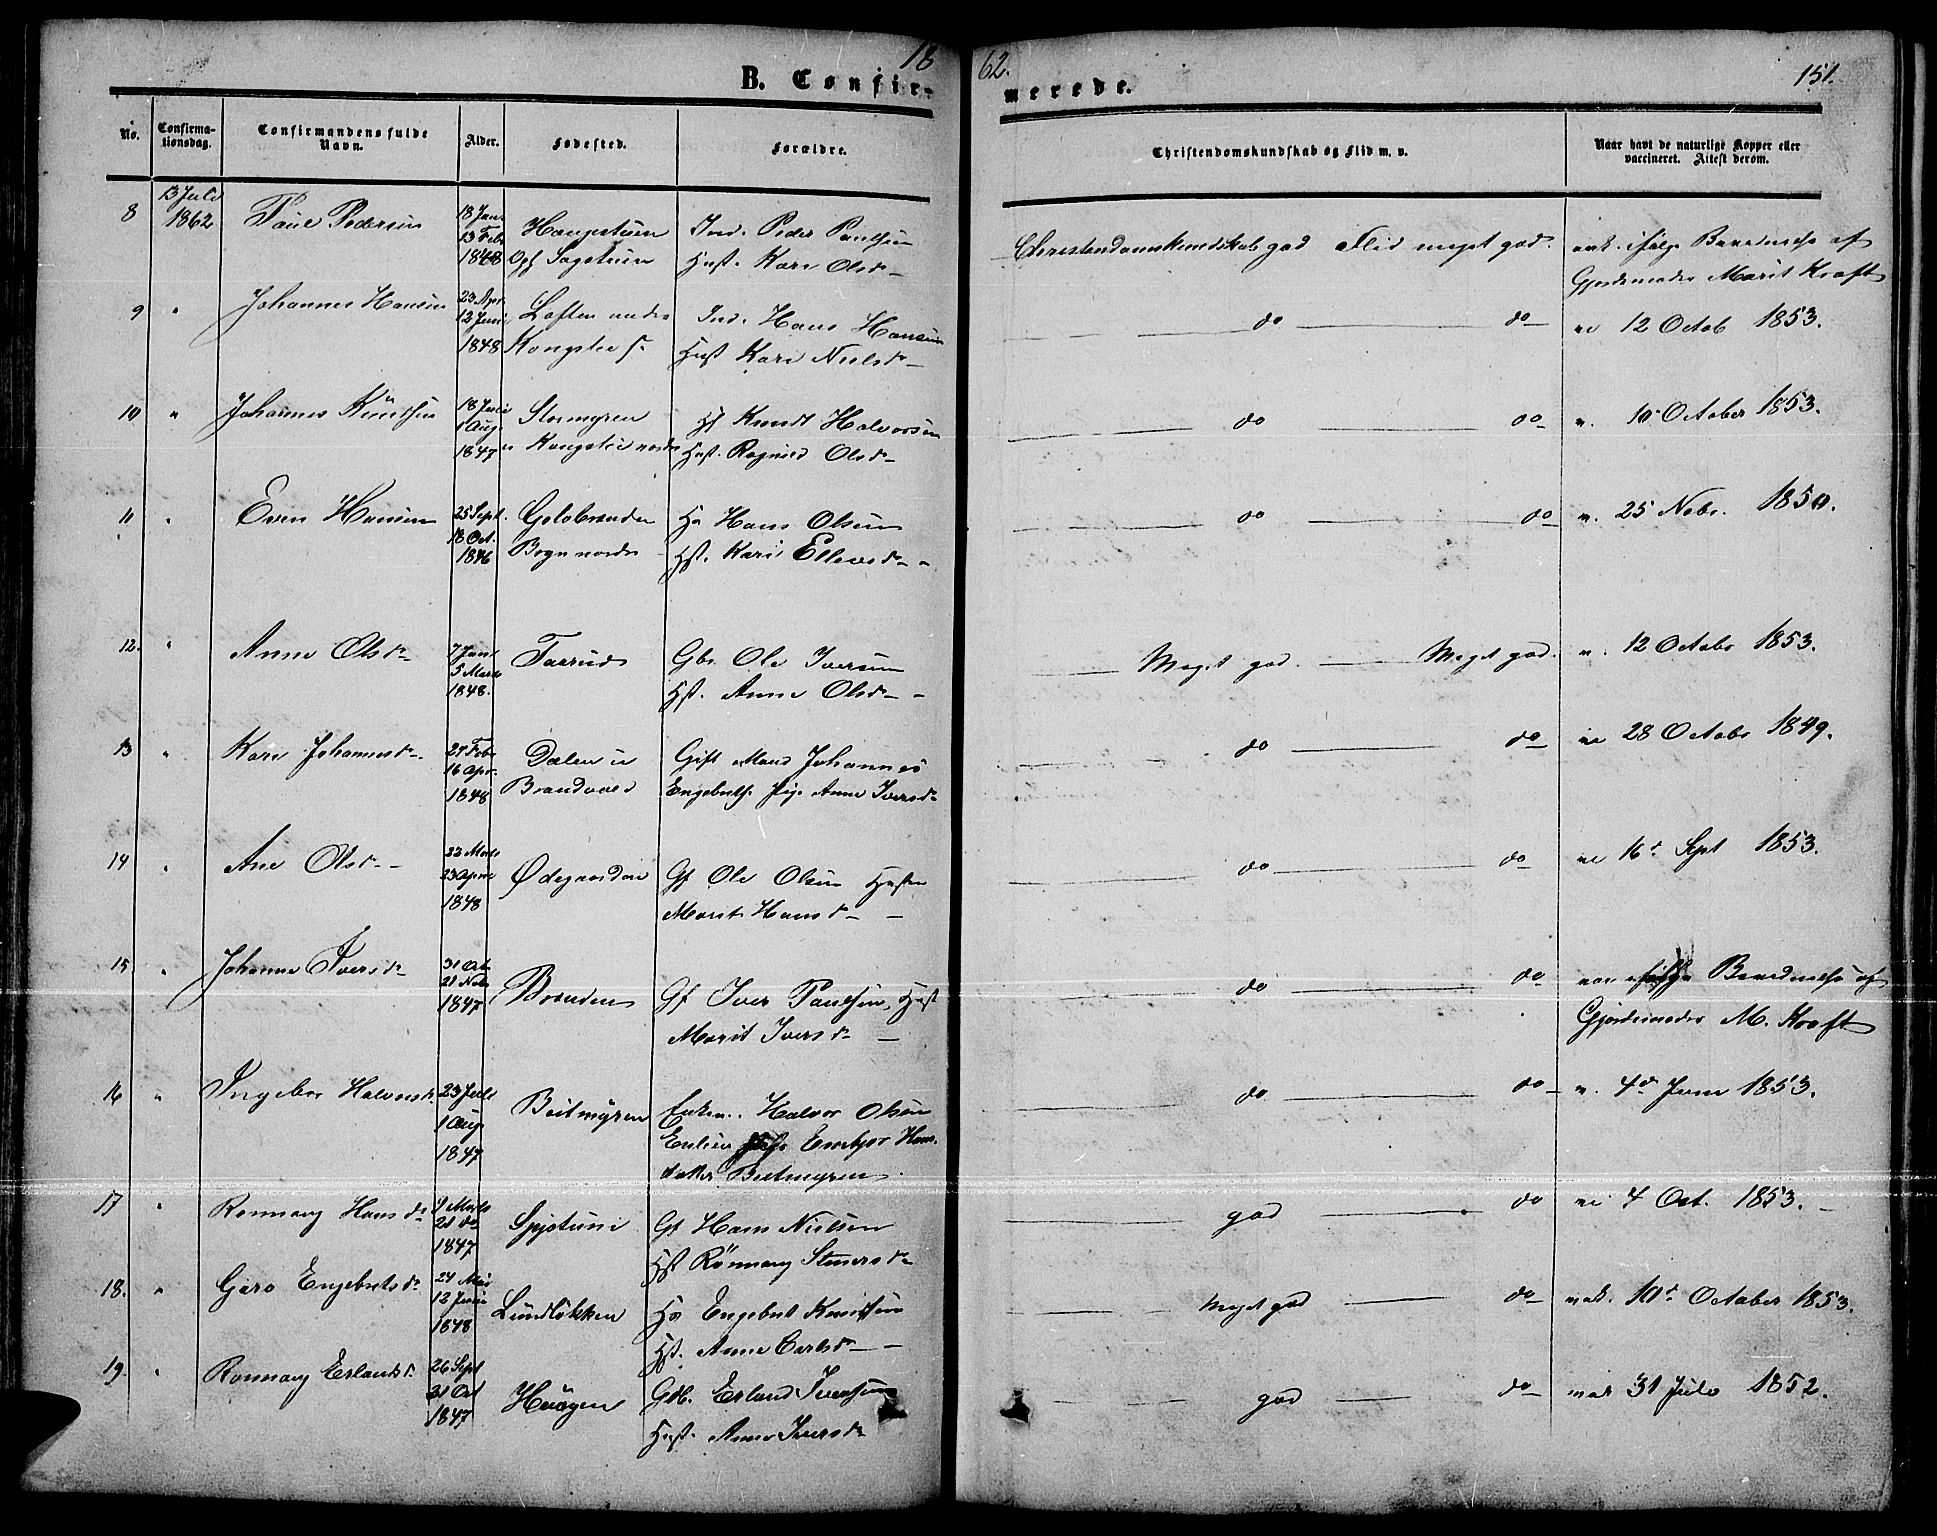 1862.
151.
B. Confirmerede.
No. Confirmationsdag. Confirmandens fulde Navn. Alder. Fødested. Forældre. Christendomskundskab og Flid m. v. Naar havt de naturlige Kopper eller vaccineret. Attest derom.
8 13 Juli 1862 Paul Pedersen 18 Jan. 13 Feb. 1848 Haugstuen Opf Sagstuen Ind. Peder Paulsen Hust. Kari Olsd. Christendomskundskab god Flid meget god. vak. ifølge Bevidnelse af Gjordemoder Marit Kraft
9 " Johannes Hansen 23 Apr. 12 Juni 1848 Loften under Kongslie s. Ind. Hans Hansen Hust Kari Nielsd. do do 12 Octob 1853.
10 " Johannes Knutsen 18 Juli 1 Aug. 1847 Stormyren u Kongslie nordre Hf Knudt Halvorsen Hust. Ragnild Olsd. do do v. 10 October 1853.
11 " Even Hansen 25 Sept. 18 Oct. 1846 Golobranden Bagn nordre Hs Hans Olsen Hst. Kari Ellevsd. do do v. 25 Nobr. 1850.
12. " Anne Olsd. 7 Jan 5 Marts 1848. Gbr. Ole Iversen Hst. Anne Olsd. Meget god. Meget god. v. 12 Octobr 1853.
13 " Kari Johannesd. 27 Feb. 16 Apr. 1848 Dalen u Brandvold Gift Mand Johannes Engebrets. Pige Anne Iversd. do do 28 Octobr 1849.
14 " Ane Olsd. 22 Marts 23 April 1848 Ødegaarden Gf Ole Olsen Husten Marit Hansd. do do 16d Sept 1853.
15 " Johanne Iversd. 31 Oct. 21 Nob. 1847 Branden Gf Iver Paulsen, Hust Marit Iversd. do do vac ifølge Bevidnelse af Gjordemoder M. Kraft
16 " Ingebor Halvorsd. 23 Juli 1 Aug. 1847 Beitmyren Enkem. Halvor Olsen Enlien Pige Embjør Hansdatter Beitmyren. do do v. 4de Juni 1853.
17 " Ronnaug Hansd. 9 Marts 21 do 1847 Spjotuni Gf Hans Nielsen Hst Rønnaug Stenersd. god do 4 Oct. 1853.
18. " Gjøro Engebretsd. 24 Mai 12 Juni 1848 Lundløkken Hs Engebret Knutsen Hst. Anne Carlsd. Meget god do vak. 10d October 1853.
19. " Ronnaug Erlandsd. 26 Sept 31 Oct 1847 Haugen Gdb. Erland Iversen Hust. Anne Iversd. god do vak 31 Juli 1852.